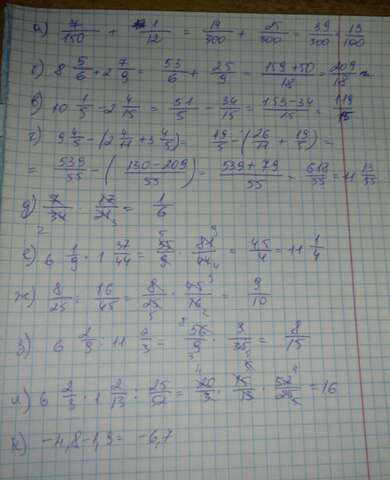 а) 7/150 + 1/12 = 19/300 + 25/300 = 39/300 = 13/100
б) 8 5/6 + 2 7/9 = 53/6 + 25/9 = 159+50/18 = 209/18 =
в) 10 1/5 - 2 4/15 = 51/5 - 34/15 = 153-34/15 = 119/15
г) 9 4/5 - (2 4/11 + 3 4/5) = 49/5 - (26/11 + 19/5) =
= 539/55 - (130-209/55) = 539+79/55 = 618/55 = 11 13/55
д) 7/34 · 17/21 3 = 1/6
2
е) 6 1/9 · 1 37/44 = 55 5/9 · 81 9/44 4 = 45/4 = 11 1/4
ж) 8/25 : 16/45 = 8/25 5 · 45 9/16 2 = 9/10
з) 6 2/9 : 11 2/3 = 56 8/9 3 · 3/35 5 = 8/15
и) 6 2/3 · 1 2/13 : 25/52 = 20 4/3 · 15/13 · 52 4/25 5 = 16
к) -4,8-1,9 = -6,7